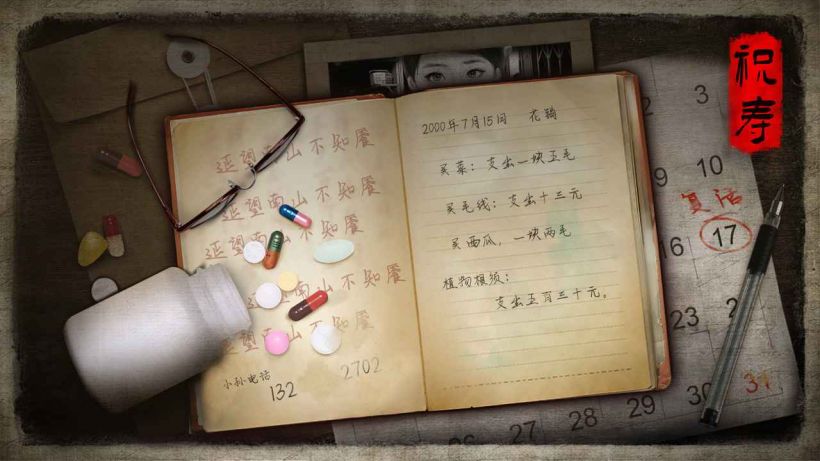 祝寿
望南山不知
望南山不知
望南山不知
南山不知
望南山不知
小孙电话
132 2702
2000年7月15日
买菜：支出一块五毛
买毛线：支出十三元
买西瓜，一块两毛
植物根须：
支出五百三十元。
2 3
9 10
复活
16 17
23 2
26 27 28 29 30 31